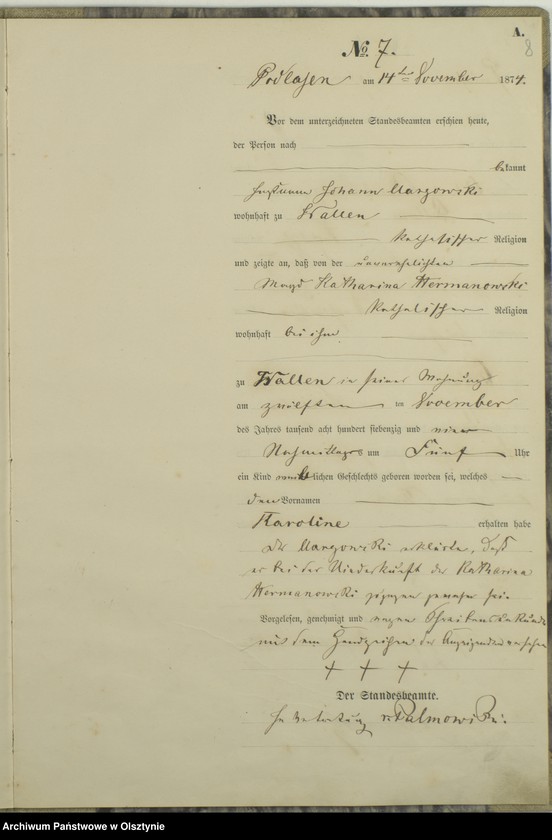 A.
8
No. 7.
Podlasen am 14ten November 1874.
Vor dem unterzeichneten Standesbeamten erschien heute,
der Person nach
bekannt
Johann Margowski
wohnhaft zu Wallen
katholischer Religion
und zeigte an, daß von der unverehelichten
Magd Katharina Hermanowski
katholischer Religion
wohnhaft bei ihm
zu Wallen in seiner Wohnung
am zwölften ten November
des Jahres tausend acht hundert siebenzig und vier
Nachmittags um Fünf Uhr
ein Kind weiblichen Geschlechts geboren worden sei, welches
den Vornamen
Karoline erhalten habe
Der Margowski erklärte, daß
er bei der Niederkunft der Katharina
Hermanowski zugegen gewesen sei
Vorgelesen, genehmigt und wegen Schreibensunkunde
mit dem Handzeichen der Anzeigenden versehen
+ + +
Der Standesbeamte.
In Vertretung v Palmowski.
Archiwum Państwowe w Olsztynie